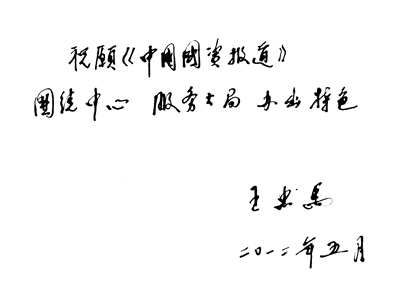 祝愿《中国国资报道》
围绕中心 服务大局 办出特色
王忠禹
二〇一二年五月